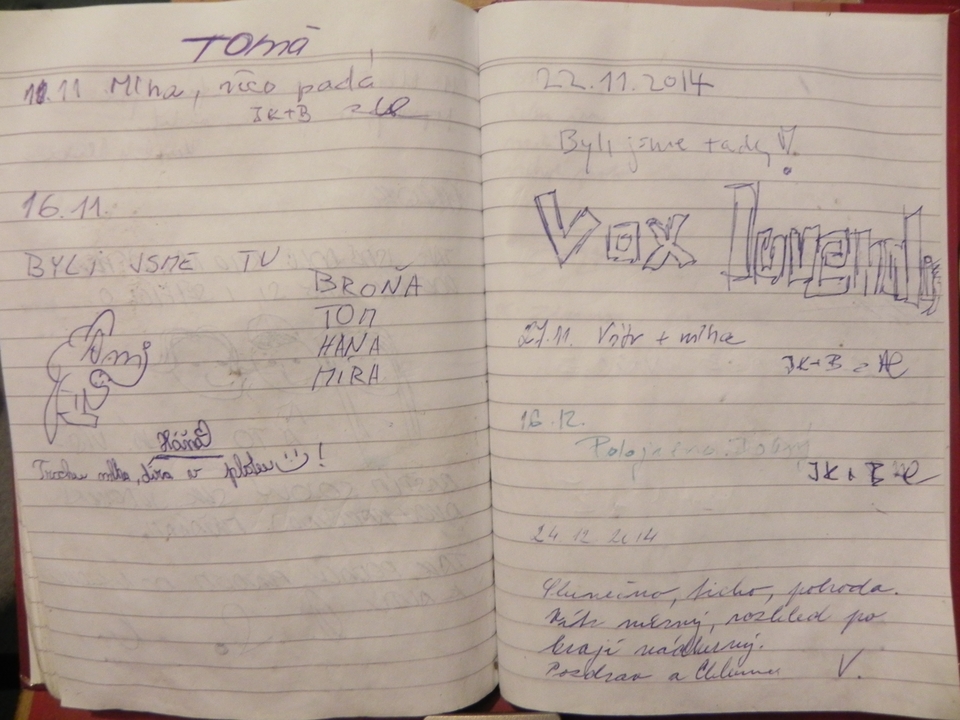 TOMÁ
11.11 Mlha, něco padá
JK+B
16.11.
BYLI JSME TU
BROŇA
TOM
HÁŇA
MÍRA
Háňa
Trochu mlha, díra v plotu !
22.11.2014
Byli jsme tady!
Vox
27.11. Vítr + mlha
JK+B
16.12.
JK+B
24.12 2014
Slunečno, ticho, pohoda.
Vítr mírný, rozhled po
kraji nádherný.
Pozdrav z Chlumu V.